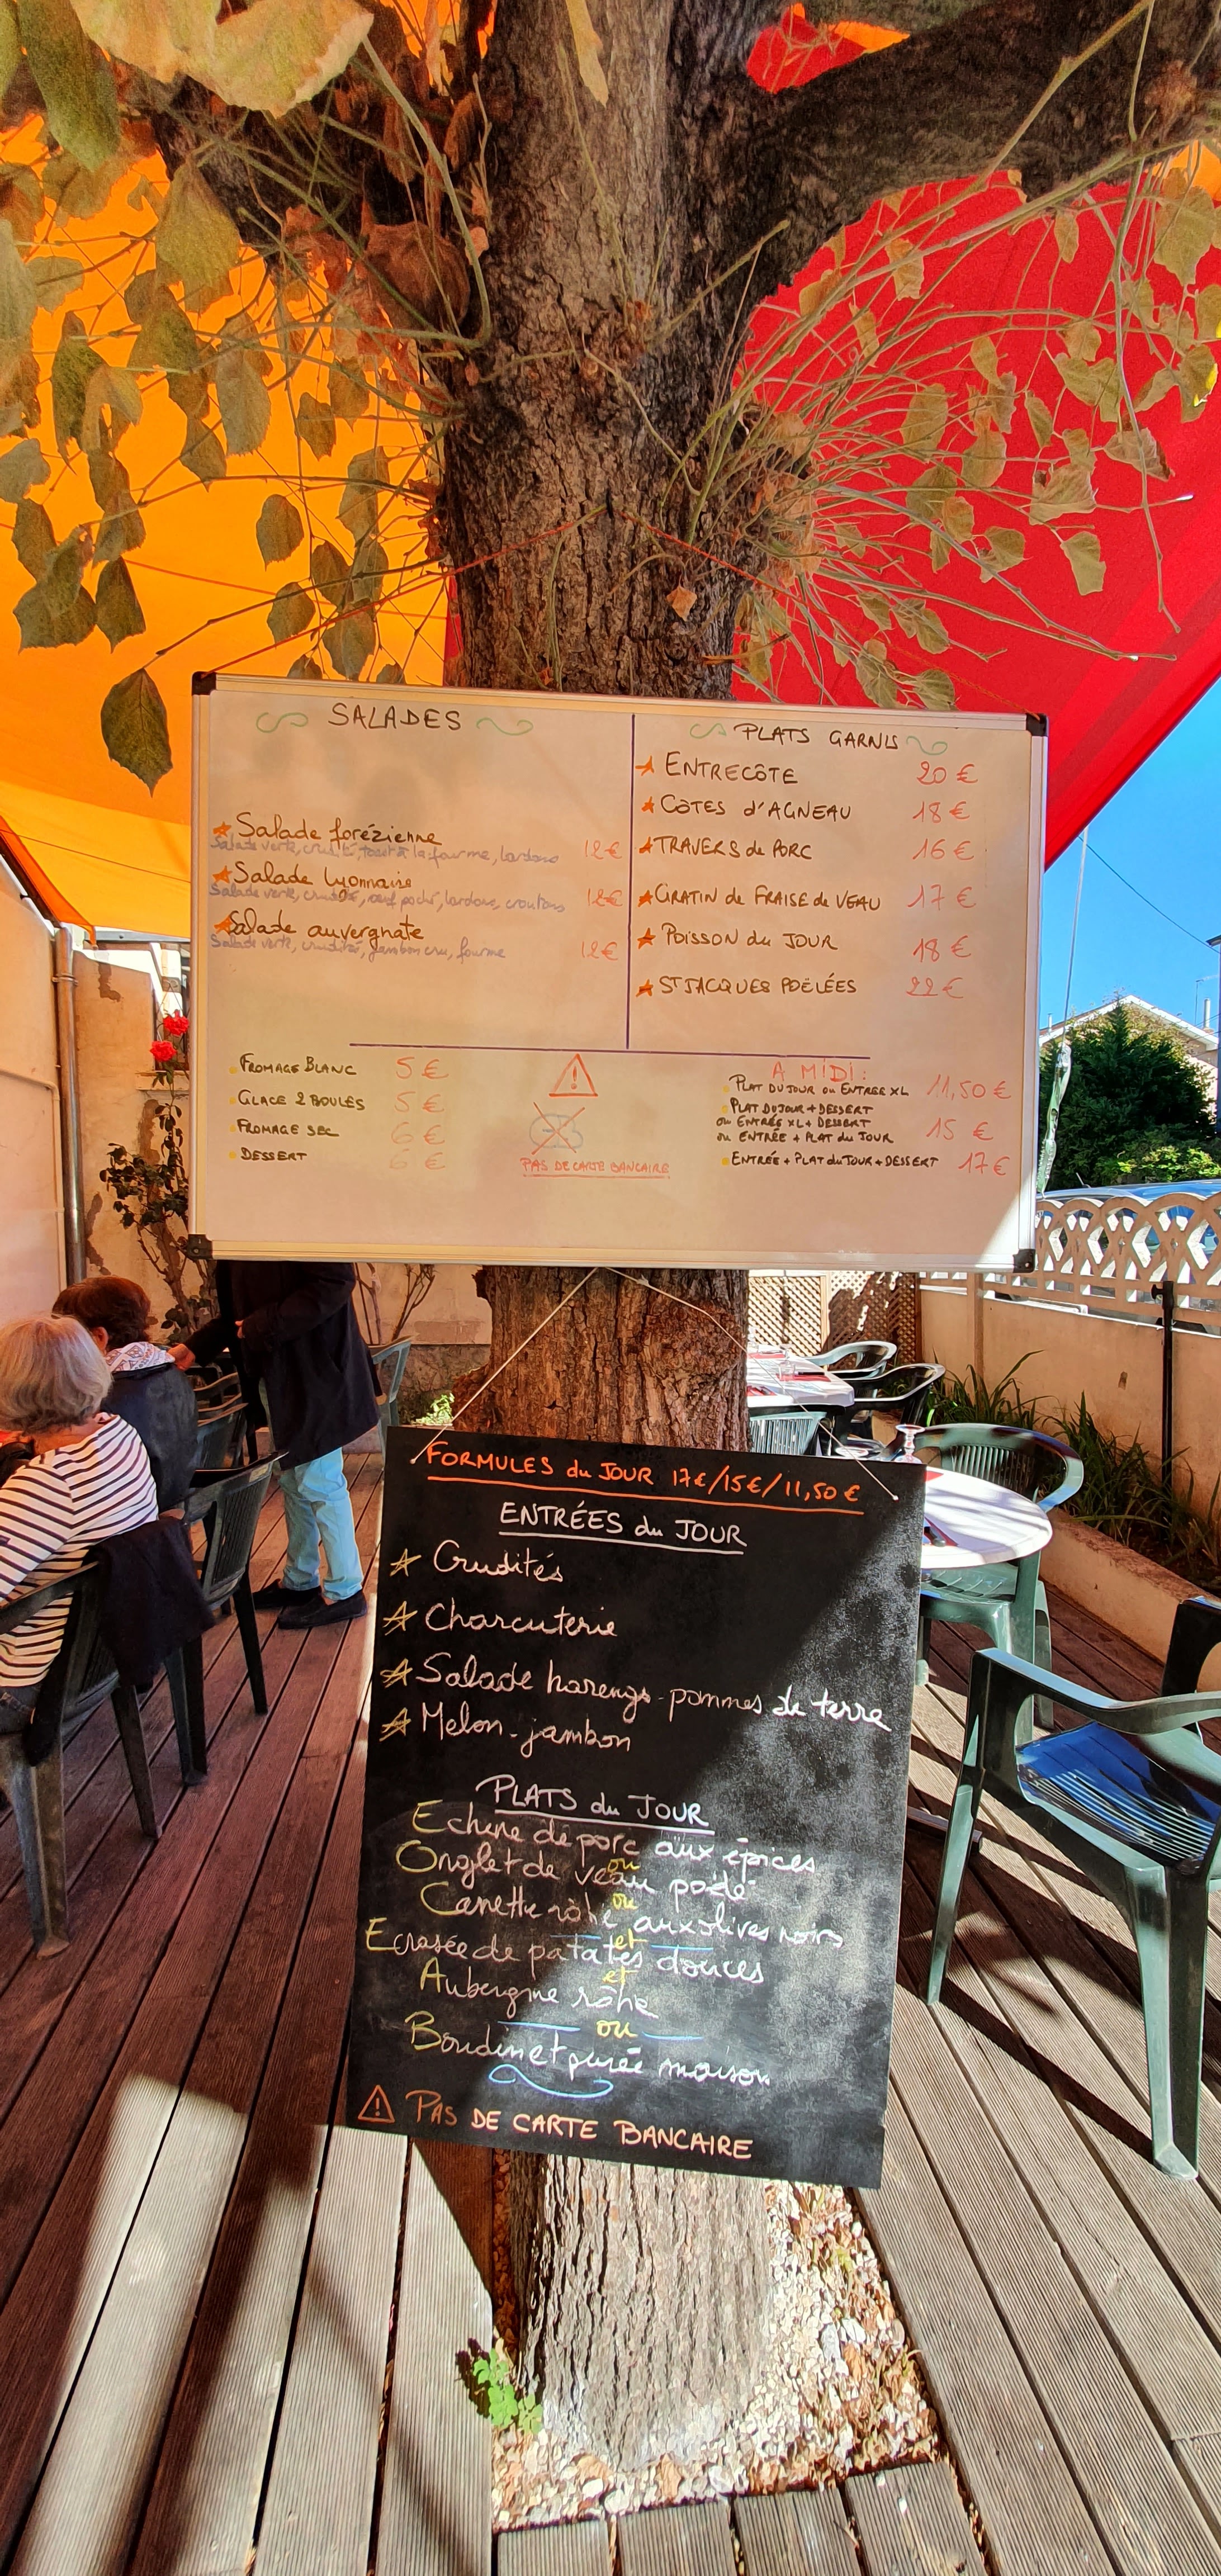 SALADES
★ Salade forézienne
Salade verte, crudité, toast à la fourme, lardons 12€
★ Salade lyonnaise
Salade verte, crudité, œuf poché, lardons, croutons 12€
★ Salade auvergnate
Salade verte, crudité, jambon cru, fourme 12€
PLATS GARNIS
★ ENTRECÔTE 20 €
★ CÔTES d'AGNEAU 18 €
★ TRAVERS de PORC 16 €
★ GRATIN de FRAISE de VEAU 17 €
★ POISSON du JOUR 18 €
★ ST JACQUES POËLÉES 22 €
FROMAGE BLANC 5 €
GLACE 2 BOULES 5 €
FROMAGE SEC 6 €
DESSERT 6 €
PAS DE CARTE BANCAIRE
A MIDI :
PLAT DU JOUR ou ENTREE XL 11,50 €
PLAT DU JOUR + DESSERT
ou ENTRÉE XL + DESSERT
ou ENTRÉE + PLAT du JOUR 15 €
ENTRÉE + PLAT du JOUR + DESSERT 17 €
FORMULES du JOUR 17€/15€/11,50 €
ENTRÉES du JOUR
★ Crudités
★ Charcuterie
★ Salade harengs-pommes de terre
★ Melon-jambon
PLATS du JOUR
Echine de porc aux épices
ou
Onglet de veau poêlé
ou
Canette rôtie aux olives noirs
et
Ecrasée de patates douces
et
Aubergine rôtie
ou
Boudin et purée maison
PAS DE CARTE BANCAIRE